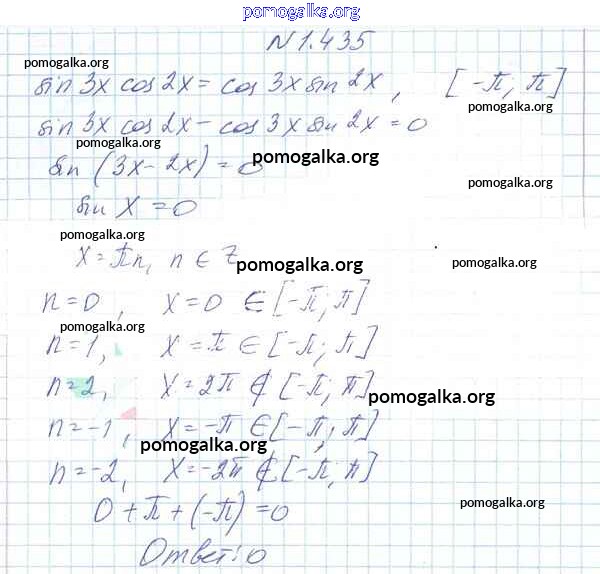 pomogalka.org
N 1.435
pomogalka.org
sin 3x cos 2x = cos 3x sin 2x, [-π; π]
pomogalka.org
sin 3x cos 2x - cos 3x sin 2x = 0
pomogalka.org
sin (3x - 2x) = 0
pomogalka.org
sin x = 0
pomogalka.org
x = πn, n ∈ Z
pomogalka.org pomogalka.org
n = 0, x = 0 ∈ [-π; π]
pomogalka.org
n = 1, x = π ∈ [-π; π]
n = 2, x = 2π ∉ [-π; π]
pomogalka.org
n = -1, x = -π ∈ [-π; π]
pomogalka.org
n = -2, x = -2π ∉ [-π; π]
0 + π + (-π) = 0
pomogalka.org
Ответ: 0